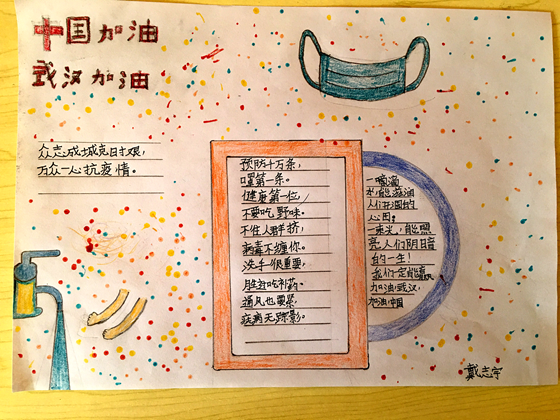 中国加油
武汉加油
众志成城克时艰，
万众一心抗疫情。
预防千万条，
口罩第一条。
健康第一位，
不要吃野味。
不住人群挤，
病毒不缠你。
洗手很重要，
胜过吃补药。
通风也要紧，
疾病无踪影。
一滴滴
水，能滋润
人们干涸的
心田；
一束光，能照
亮人们阴暗
的一生！
我们一定能赢
加油武汉，
加油中国
戴志宇